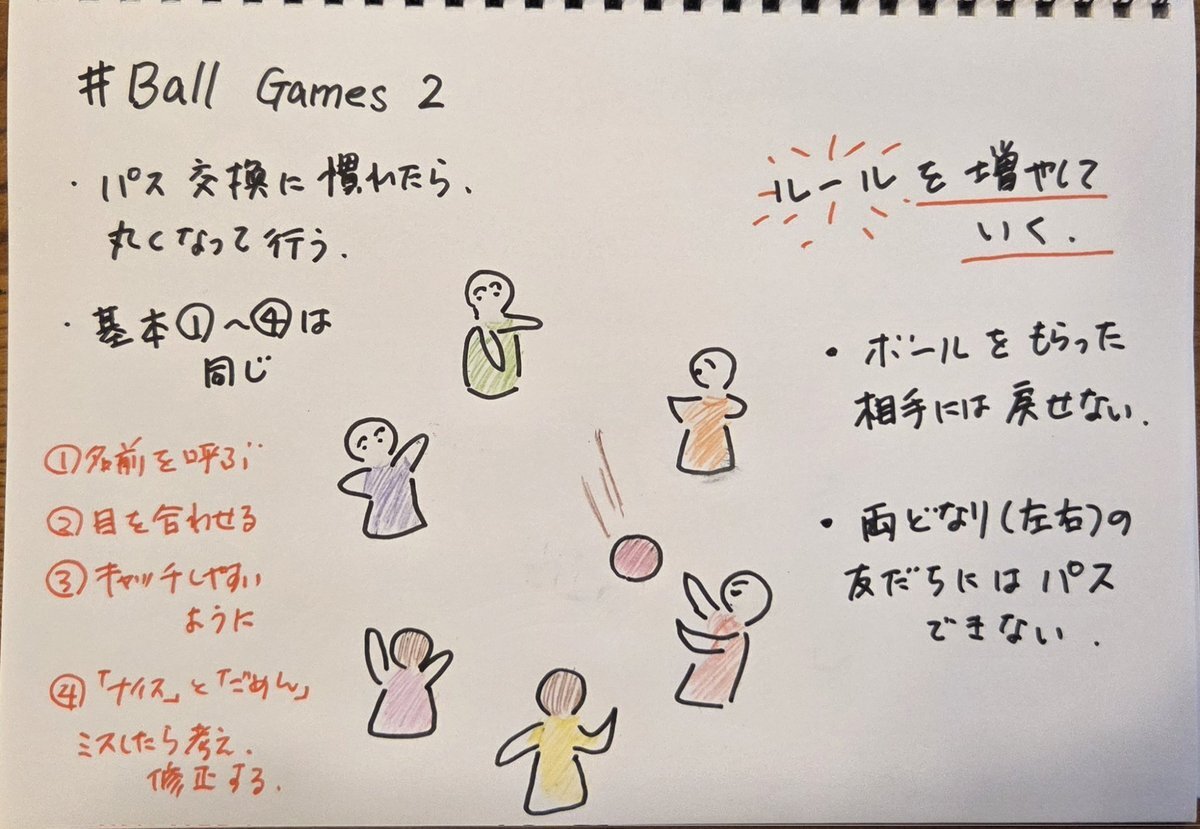 #Ball Games 2
・パス交換に慣れたら、
丸くなって行う.
・基本①〜④は
同じ
①名前を呼ぶ
②目を合わせる
③キャッチしやすい
ように
④「ナイス」と「ごめん」
ミスしたら考え、
修正する.
ルールを増やして
いく.
・ボールをもらった
相手には戻せない.
・両どなり(左右)の
友だちにはパス
できない.